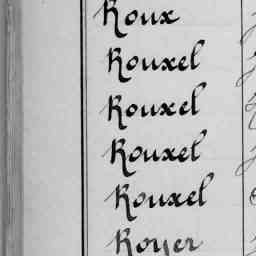 Roux
Rouxel
Rouxel
Rouxel
Rouxel
Royer